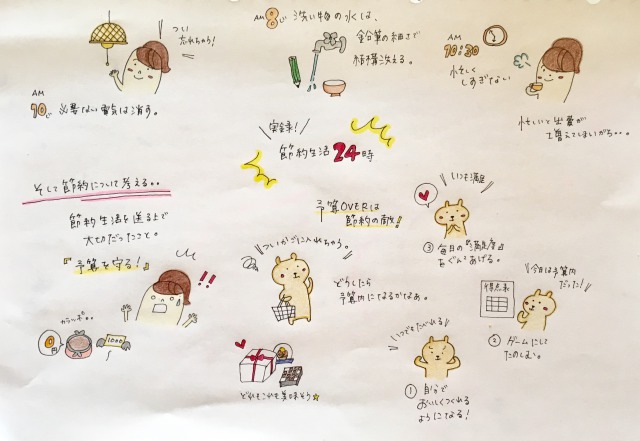 つい
忘れちゃう!
AM
10じ 必要ない電気は消す。
AM 8じ 洗い物の水は、
鉛筆の細さで
結構洗える。
AM
10:30
忙しく
しすぎない
忙しいと出費が
増えてしまいがち・・。
実録!
節約生活24時
そして節約について考える・・
節約生活を送る上で
大切だったこと。
『予算を守る!』
!!
カラッポ。。
0円
1000
予算OVERは
節約の敵!
ついカゴに入れちゃう。
どうしたら
予算内になるかなぁ。
どれもこれも美味そう☆
いつも満足
③ 毎日の『満足度』
をぐんとあげる。
今日は予算内
だった!
得点表
② ゲームにして
たのしむ。
いつでもたべれる
① 自分で
おいしくつくれる
ようになる!